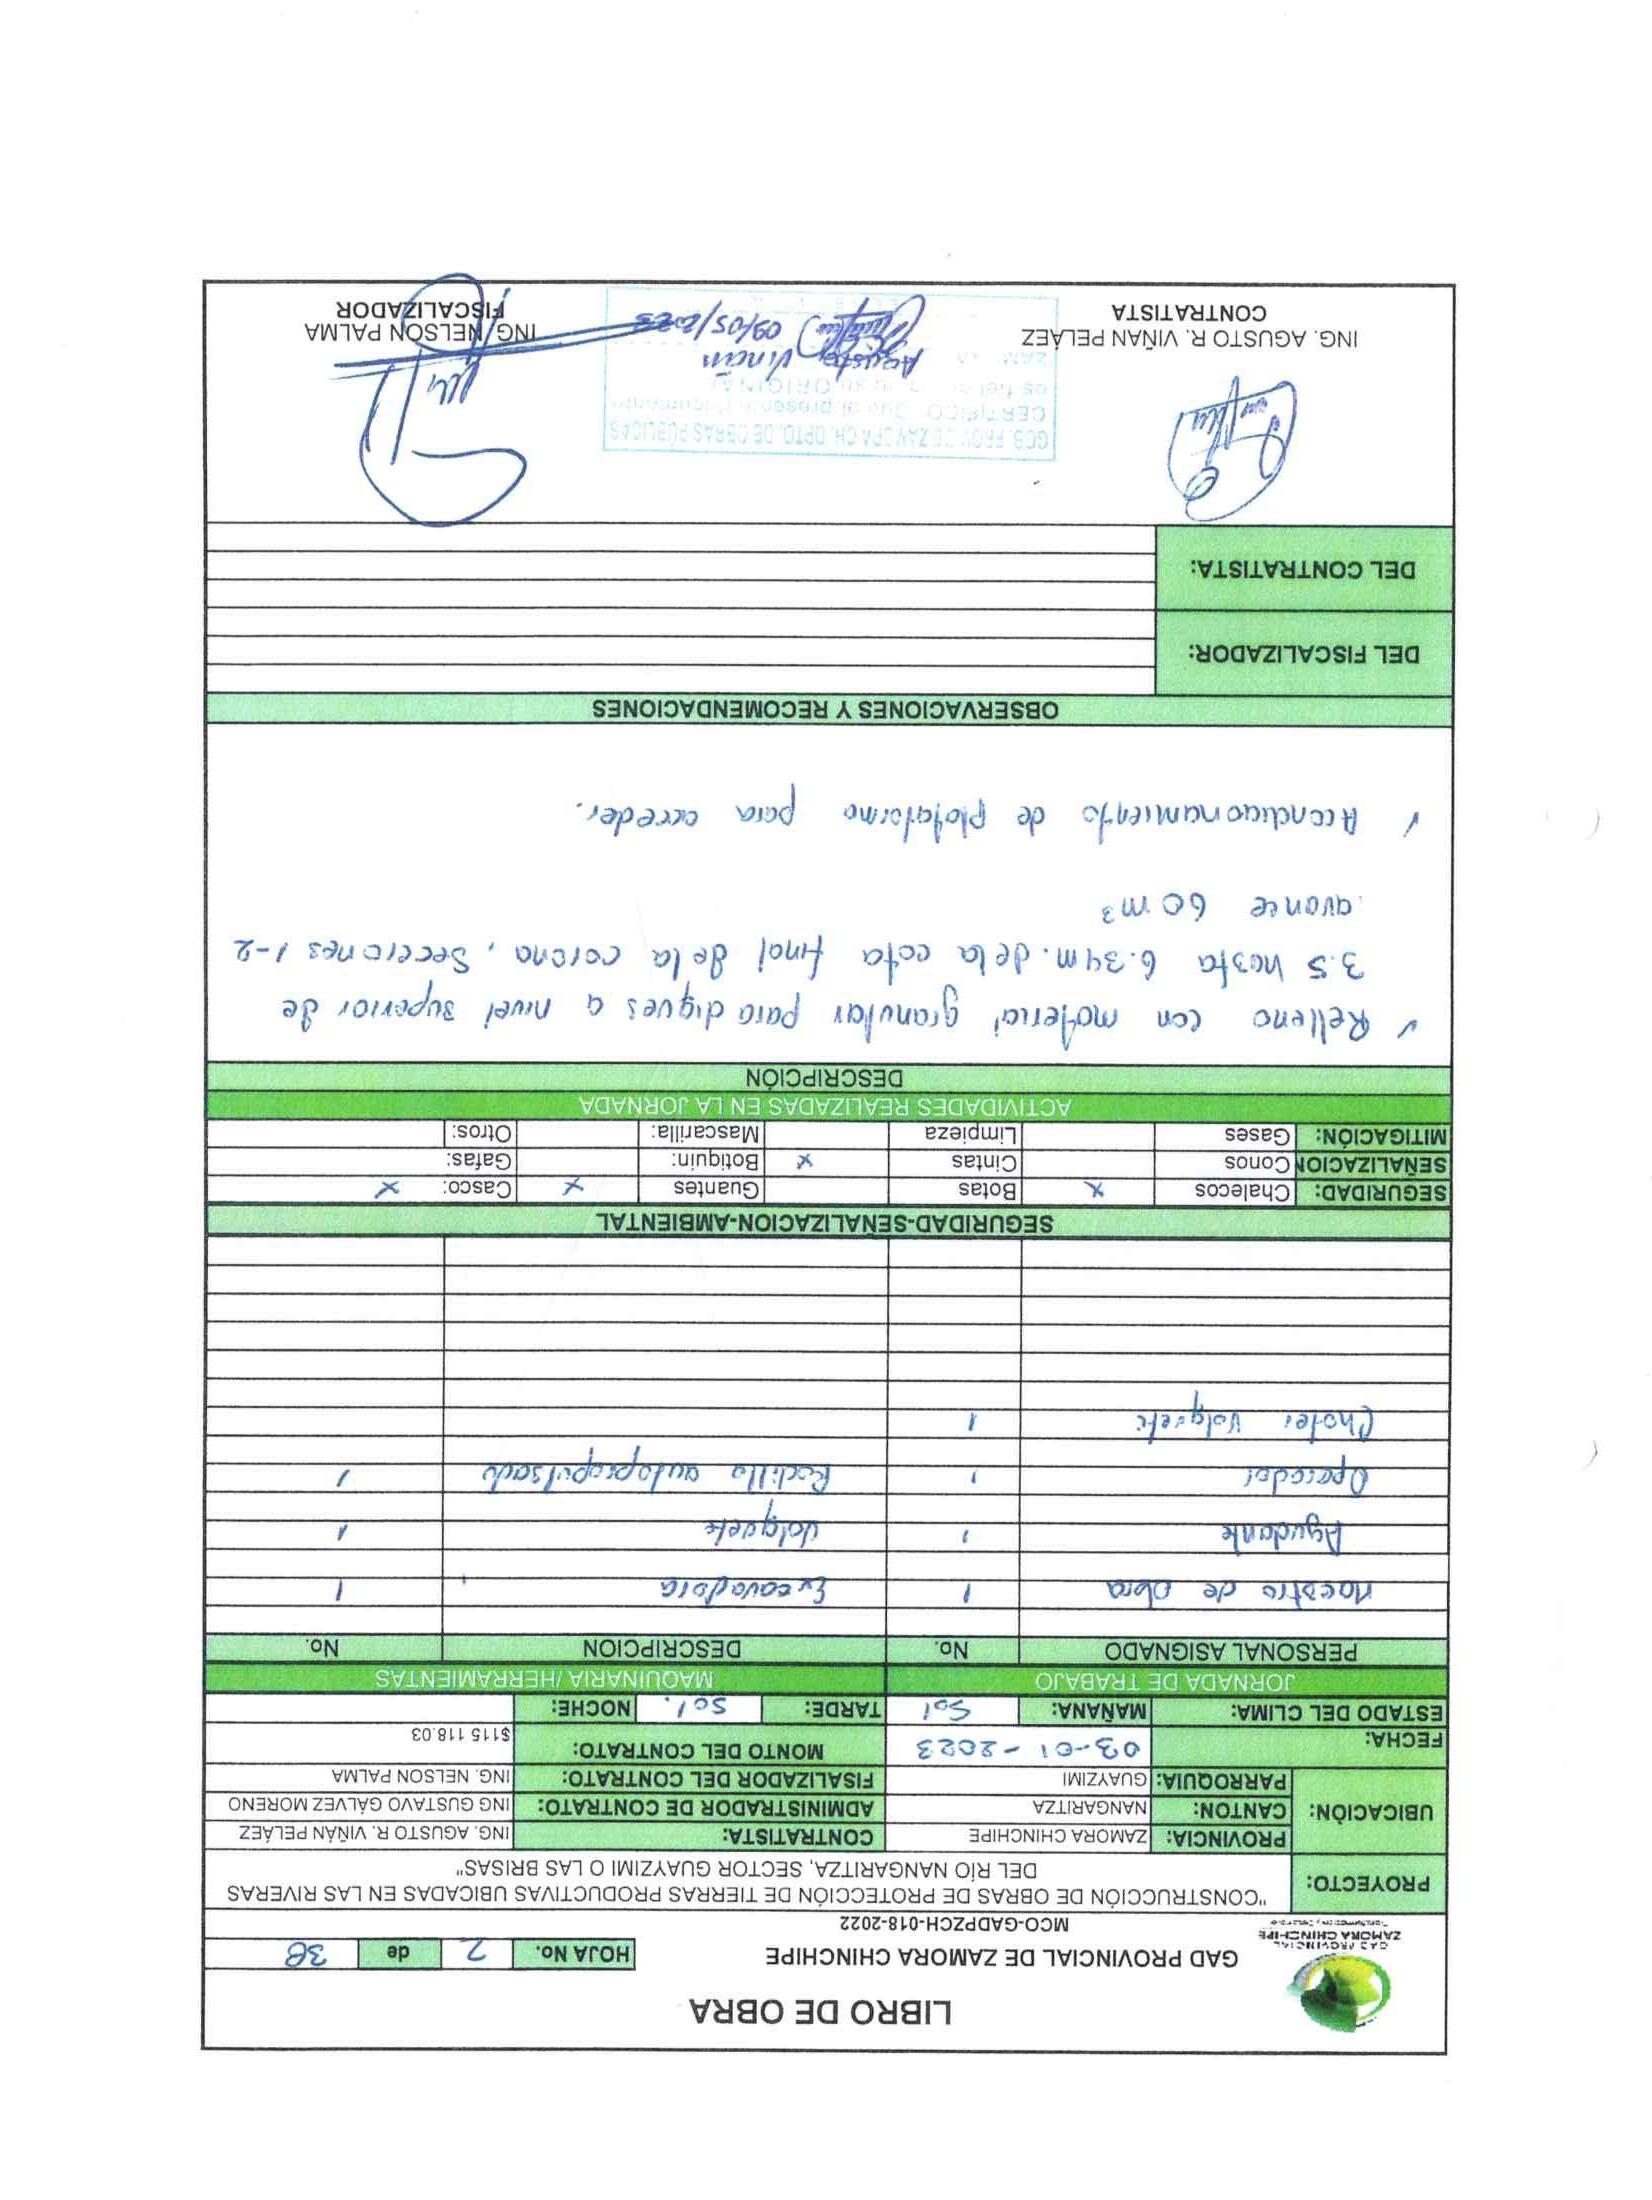 LIBRO DE OBRA
GAD PROVINCIAL DE ZAMORA CHINCHIPE HOJA No. 2 de 38
MCO-GADPZCH-018-2022
GAD PROVINCIAL
ZAMORA CHINCHIPE
PROYECTO: "CONSTRUCCIÓN DE OBRAS DE PROTECCIÓN DE TIERRAS PRODUCTIVAS UBICADAS EN LAS RIVERAS
DEL RÍO NANGARITZA, SECTOR GUAYZIMI O LAS BRISAS"
UBICACIÓN: PROVINCIA: ZAMORA CHINCHIPE CONTRATISTA: ING. AGUSTO R. VIÑÁN PELÁEZ
CANTON: NANGARITZA ADMINISTRADOR DE CONTRATO: ING GUSTAVO GÁLVEZ MORENO
PARROQUIA: GUAYZIMI FISALIZADOR DEL CONTRATO: ING. NELSON PALMA
FECHA: 03-01-2023 MONTO DEL CONTRATO: $115 118.03
ESTADO DEL CLIMA: MAÑANA: Sol TARDE: Sol. NOCHE:
JORNADA DE TRABAJO MAQUINARIA /HERRAMIENTAS
PERSONAL ASIGNADO No. DESCRIPCION No.
Maestro de obra 1 Excavadora 1
Ayudante 1 Volqueta 1
Operador 1 Rodillo autopropulsado 1
Chofer Volqueta 1
SEGURIDAD-SEÑALIZACION-AMBIENTAL
SEGURIDAD: Chalecos x Botas Guantes x Casco: x
SEÑALIZACION Conos Cintas x Botiquin: Gafas:
MITIGACIÓN: Gases Limpieza Mascarilla: Otros:
ACTIVIDADES REALIZADAS EN LA JORNADA
DESCRIPCIÓN
✓ Relleno con material granular para diques a nivel superior de
3.5 hasta 6.34m. de la cota final de la corona, Secciones 1-2
avance 60 m³
✓ Acondicionamiento de plataforma para acceder.
OBSERVACIONES Y RECOMENDACIONES
DEL FISCALIZADOR:
DEL CONTRATISTA:
GOB. PROV. DE ZAMORA CH. DPTO. DE OBRAS PÚBLICAS
CERTIFICO Que el presente documento
es fiel su ORIGINAL
Agusto Viñan
09/05/2023
ING. AGUSTO R. VIÑAN PELÁEZ ING. NELSON PALMA
CONTRATISTA FISCALIZADOR